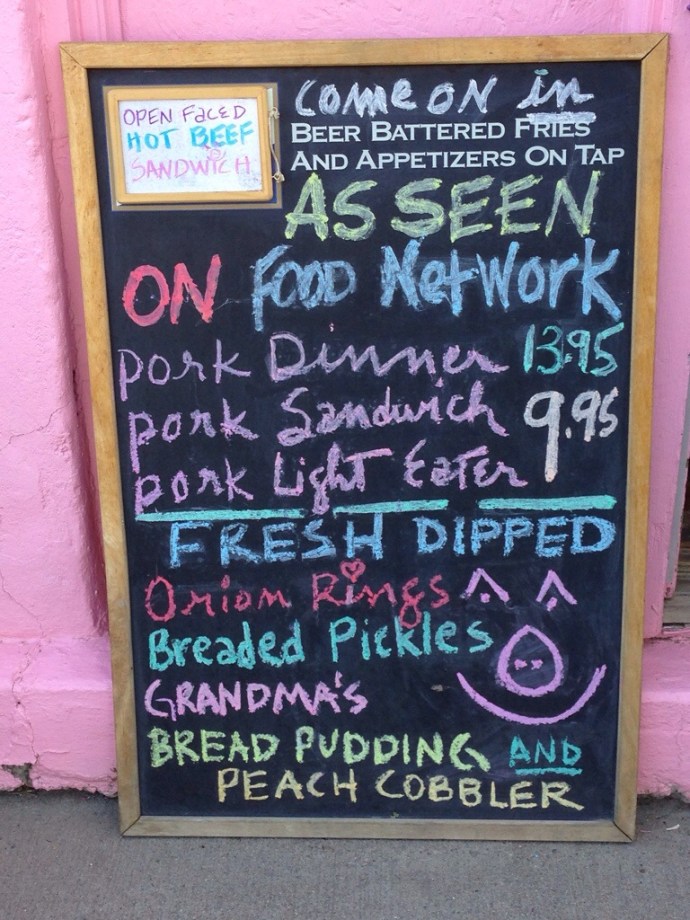 OPEN FACED
HOT BEEF
SANDWICH
COME ON in
BEER BATTERED FRIES
AND APPETIZERS ON TAP
AS SEEN
ON FOOD NetWORK
pork Dinner 13.95
pork Sandwich 9.95
pork Light Eater
FRESH DIPPED
Onion Rings
Breaded Pickles
GRANDMA'S
BREAD PUDDING AND
PEACH COBBLER